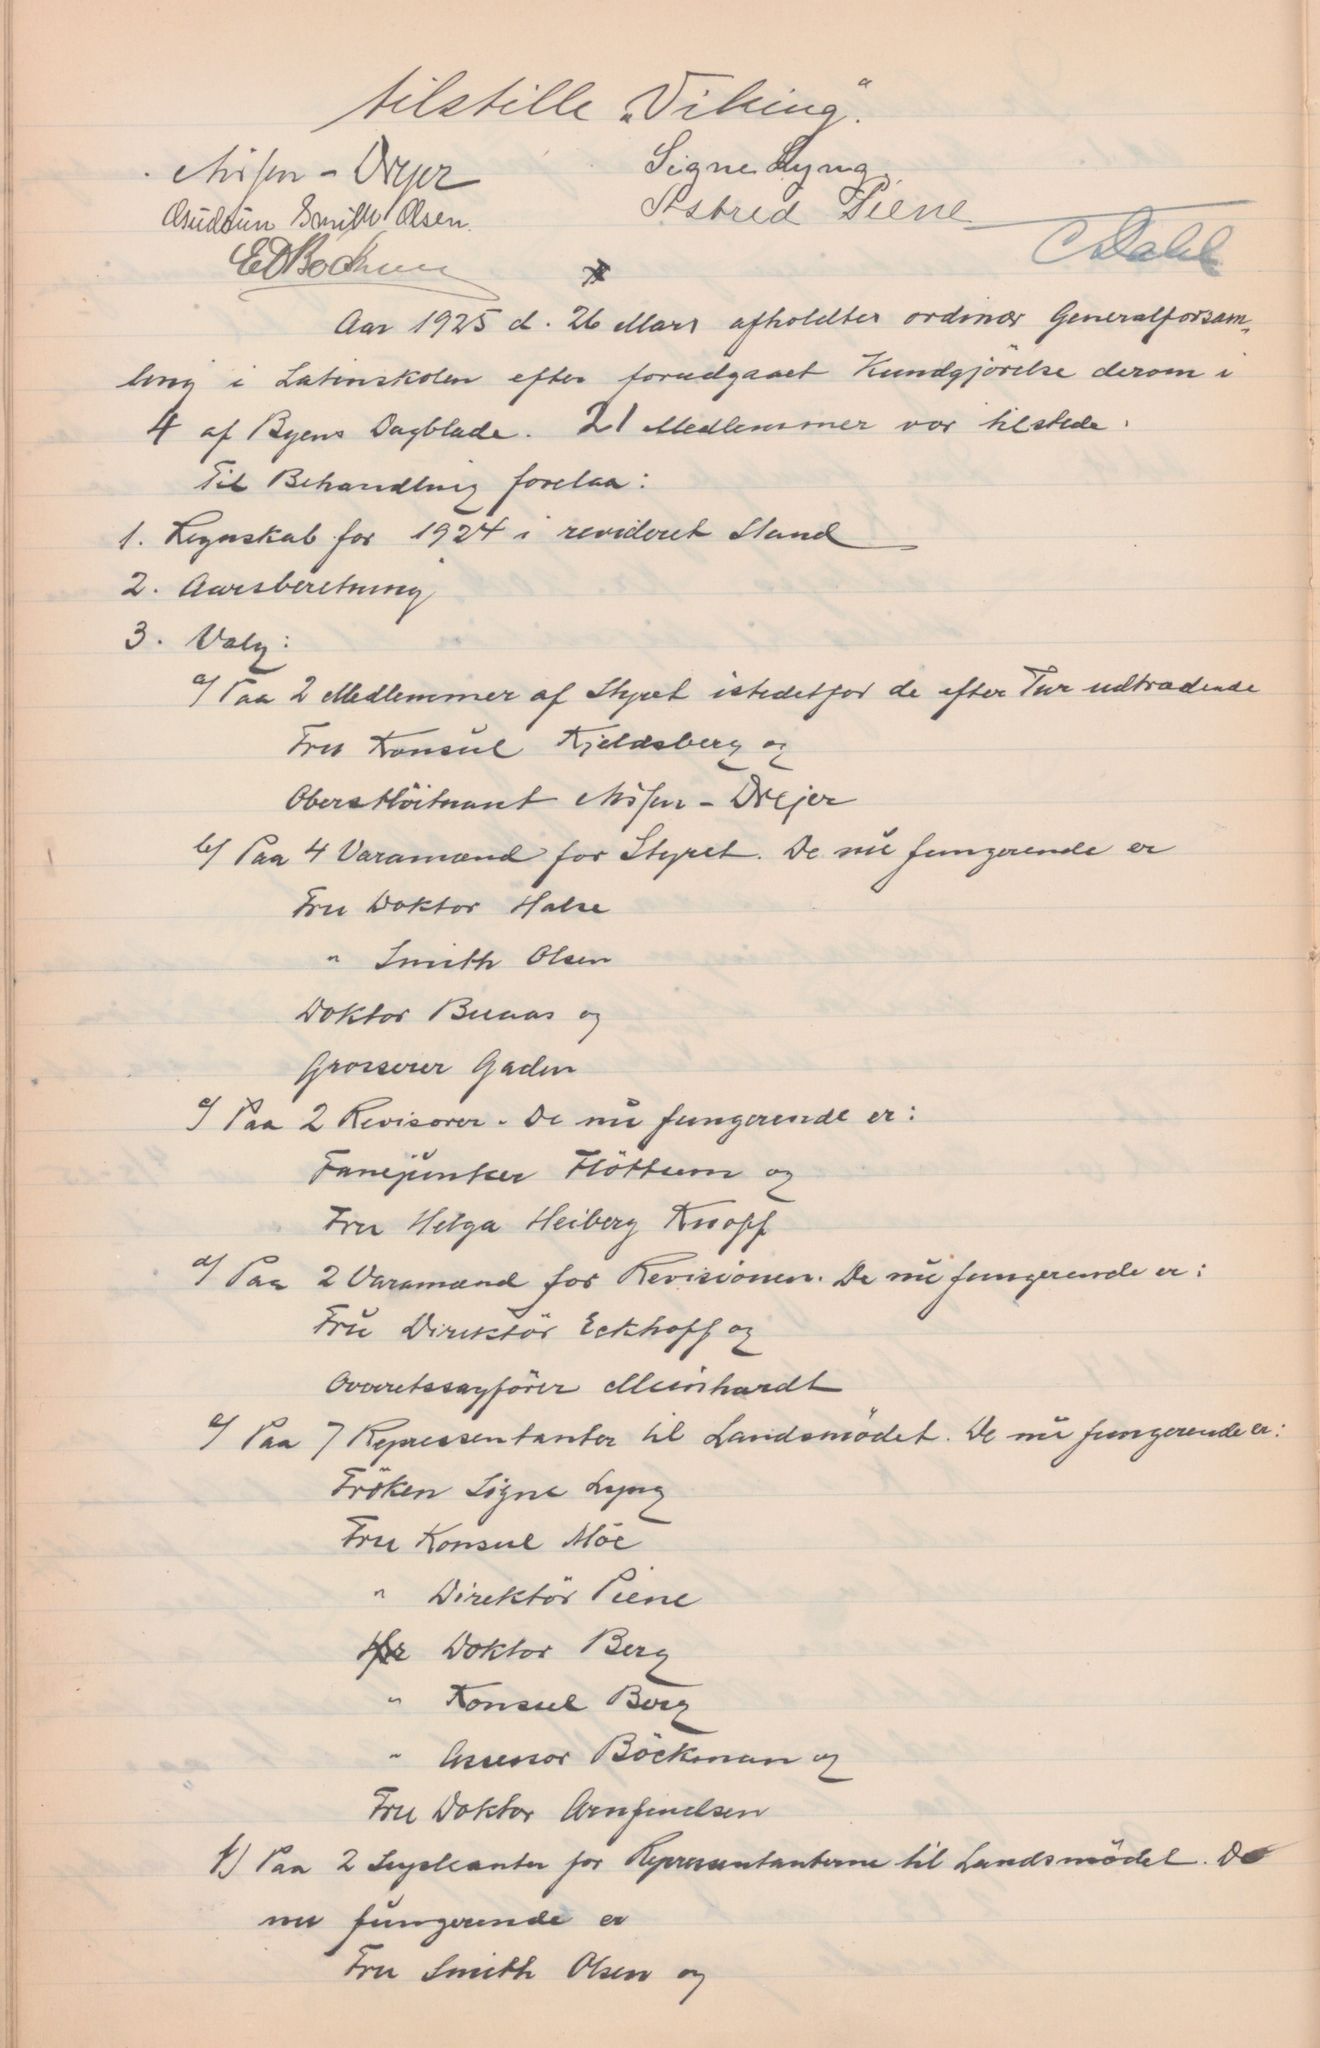 tilstille „Viking“.
Nissen-Drejer Signe Lyng
Gudrun Smith Olsen. Astrid Piene
E D Böckman C Dahl
Aar 1925 d. 26 Mars afholdtes ordinær Generalforsam-
ling i Latinskolen efter forudgaaet Kundgjörelse derom i
4 af Byens Dagblade. 21 Medlemmer var tilstede.
Til Behandling forelaa:
1. Regnskab for 1924 i revideret Stand
2. Aarsberetning
3. Valg:
a/ Paa 2 Medlemmer af Styret istedetfor de efter Tur udtrædende
Fru Konsul Kjeldsberg og
Oberstlöitnant Nissen-Drejer
b/ Paa 4 Varamænd for Styret. De nu fungerende er
Fru Doktor Halse
" Smith Olsen
Doktor Buaas og
Grosserer Gaden
c/ Paa 2 Revisorer. De nu fungerende er:
Fanejunker Flöttum og
Fru Helga Heiberg Knoff
d/ Paa 2 Varamænd for Revisionen. De nu fungerende er:
Fru Direktör Eckhoff og
Overretssagförer Meinhardt
e/ Paa 7 Representanter til Landsmödet. De nu fungerende er:
Fröken Signe Lyng
Fru Konsul Möe
" Direktör Piene
Hr Doktor Berg
" Konsul Berg
" Assessor Böckman og
Fru Doktor Arnfindsen
f) Paa 2 Supleanter for Representanterne til Landsmödet. De
nu fungerende er
Fru Smith Olsen og